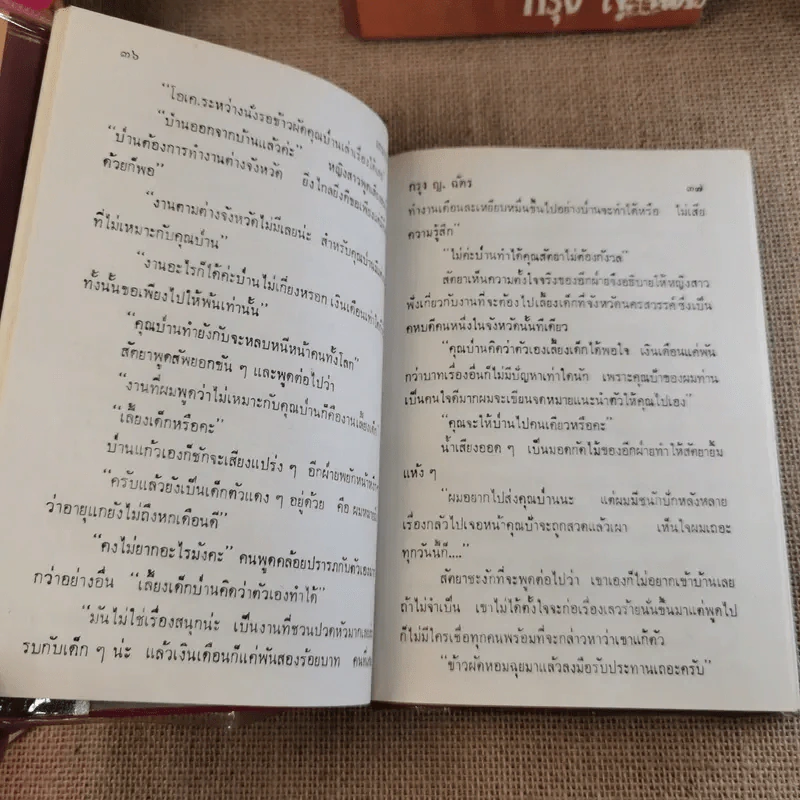 กรุง
๓๖
“โอเค.ระหว่างนั่งรอข้าวผัดคุณบ่านเล่าเรื่อง
“บ่านออกจากบ้านแล้วค่ะ” หญิงสาวพูด
“บ่านต้องการทำงานต่างจังหวัด ยิ่งไกลยิ่งดีขอเพียง
ด้วยก็พอ”
“งานตามต่างจังหวัดไม่มีเลยน่ะ สำหรับคุณบ่าน
ที่ไม่เหมาะกับคุณบ่าน”
“งานอะไรก็ได้ค่ะบ่านไม่เกี่ยงหรอก เงินเดือนเท่า
ทั้งนั้นขอเพียงไปให้พ้นเท่านั้น”
“คุณบ่านทำยังกับจะหลบหนีหน้าคนทั้งโลก”
สัตยาพูดสัพยอกขัน ๆ และพูดต่อไปว่า
“งานที่ผมพูดว่าไม่เหมาะกับคุณบ่านก็คืองานเลี้ยงเด็ก
“เลี้ยงเด็กหรือคะ”
บ่านแก้วเองก็ชักจะเสียงแปร่ง ๆ อีกฝ่ายพยักหน้า
“ครับแล้วยังเป็นเด็กตัวแดง ๆ อยู่ด้วย คือ ผม
ว่าอายุแกยังไม่ถึงหกเดือนดี”
“คงไม่ยากอะไรมังคะ” คนพูดคล้อยปรารภกับตัวเอง
กว่าอย่างอื่น “เลี้ยงเด็กบ่านคิดว่าตัวเองทำได้”
“มันไม่ใช่เรื่องสนุกน่ะ เป็นงานที่ชวนปวดหัวมาก
รบกับเด็ก ๆ น่ะ แล้วเงินเดือนก็แค่พันสองร้อยบาท
กรุง ญ. ฉัตร
๓๗
ทำงานเดือนละเหยียบหมื่นขึ้นไปอย่างบ่านจะทำได้หรือ ไม่เสีย
ความรู้สึก”
“ไม่ค่ะบ่านทำได้คุณสัตยาไม่ต้องกังวล”
สัตยาเห็นความตั้งใจจริงของอีกฝ่ายจึงอธิบายให้หญิงสาว
ฟังเกี่ยวกับงานที่จะต้องไปเลี้ยงเด็กที่จังหวัดนครสวรรค์ ซึ่งเป็น
คหบดีคนหนึ่งในจังหวัดนั้นทีเดียว
“คุณบ่านคิดว่าตัวเองเลี้ยงเด็กได้พอใจ เงินเดือนแค่พัน
กว่าบาทเรื่องอื่นก็ไม่มีปัญหาเท่าใดนัก เพราะคุณป้าของผมท่าน
เป็นคนใจดีมากผมจะเขียนจดหมายแนะนำตัวให้คุณไปเอง”
“คุณจะให้บ่านไปคนเดียวหรือคะ”
น้ำเสียงออด ๆ เป็นมอดกัดไม้ของอีกฝ่ายทำให้สัตยายิ้ม
แห้ง ๆ
“ผมอยากไปส่งคุณบ่านนะ แต่ผมมีชนักปักหลังหลาย
เรื่องกลัวไปเจอหน้าคุณป้าจะถูกสวดแล้วเผา เห็นใจผมเถอะ
ทุกวันนี้ก็....”
สัตยาชะงักที่จะพูดต่อไปว่า เขาเองก็ไม่อยากเข้าบ้านเลย
ถ้าไม่จำเป็น เขาไม่ได้ตั้งใจจะก่อเรื่องเลวร้ายนั่นขึ้นมาแต่พูดไป
ก็ไม่มีใครเชื่อทุกคนพร้อมที่จะกล่าวหาว่าเขาแก้ตัว
“ข้าวผัดหอมฉุยมาแล้วลงมือรับประทานเถอะครับ”